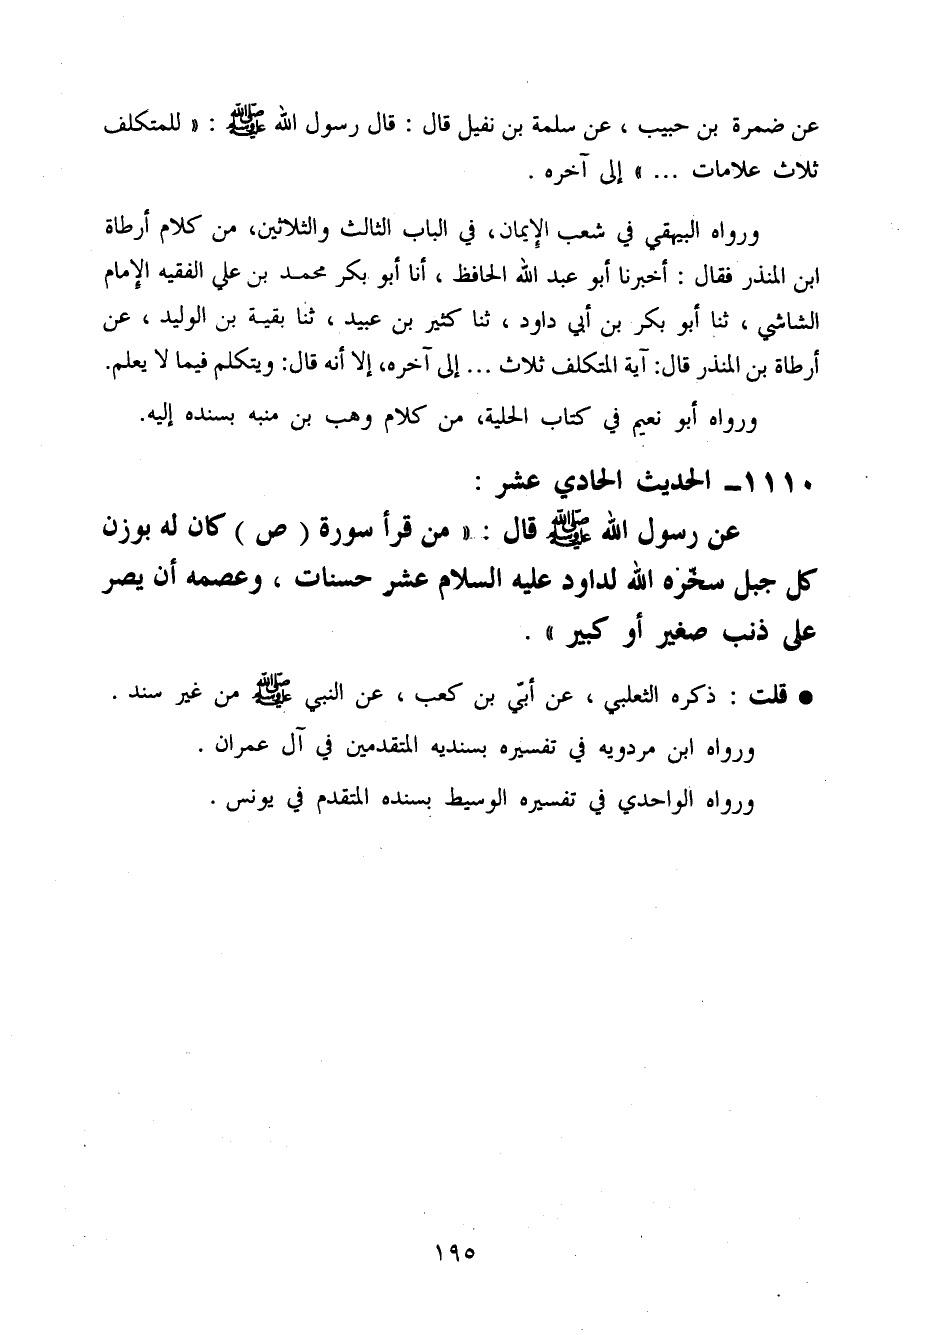 عن ضمرة بن حبيب ، عن سلمة بن نفيل قال : قال رسول الله ﷺ : « للمتكلف
ثلاث علامات ... » إلى آخره .
ورواه البيهقي في شعب الإيمان، في الباب الثالث والثلاثين، من كلام أرطاة
ابن المنذر فقال : أخبرنا أبو عبد الله الحافظ ، أنا أبو بكر محمد بن علي الفقيه الإمام
الشاشي ، ثنا أبو بكر بن أبي داود ، ثنا كثير بن عبيد ، ثنا بقية بن الوليد ، عن
أرطاة بن المنذر قال: آية المتكلف ثلاث ... إلى آخره، إلا أنه قال: ويتكلم فيما لا يعلم.
ورواه أبو نعيم في كتاب الحلية، من كلام وهب بن منبه بسنده إليه.
١١١٠ـ الحديث الحادي عشر :
عن رسول الله ﷺ قال : « من قرأ سورة ( ص ) كان له بوزن
كل جبل سخّره الله لداود عليه السلام عشر حسنات ، وعصمه أن يصر
على ذنب صغير أو كبير » .
● قلت : ذكره الثعلبي ، عن أبيّ بن كعب ، عن النبي ﷺ من غير سند .
ورواه ابن مردويه في تفسيره بسنديه المتقدمين في آل عمران .
ورواه الواحدي في تفسيره الوسيط بسنده المتقدم في يونس .
١٩٥